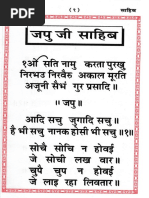 (१) साहिब
जपु जी साहिब
१ओं सति नामु करता पुरखु
निरभउ निरवैरु अकाल मूरति
अजूनी सैभं गुर प्रसादि ॥
॥ जपु ॥
आदि सचु जुगादि सचु ॥
है भी सचु नानक होसी भी सचु ॥१॥
सोचै सोचि न होवई
जे सोची लख वार ॥
चुपै चुप न होवई
जे लाइ रहा लिवतार ॥